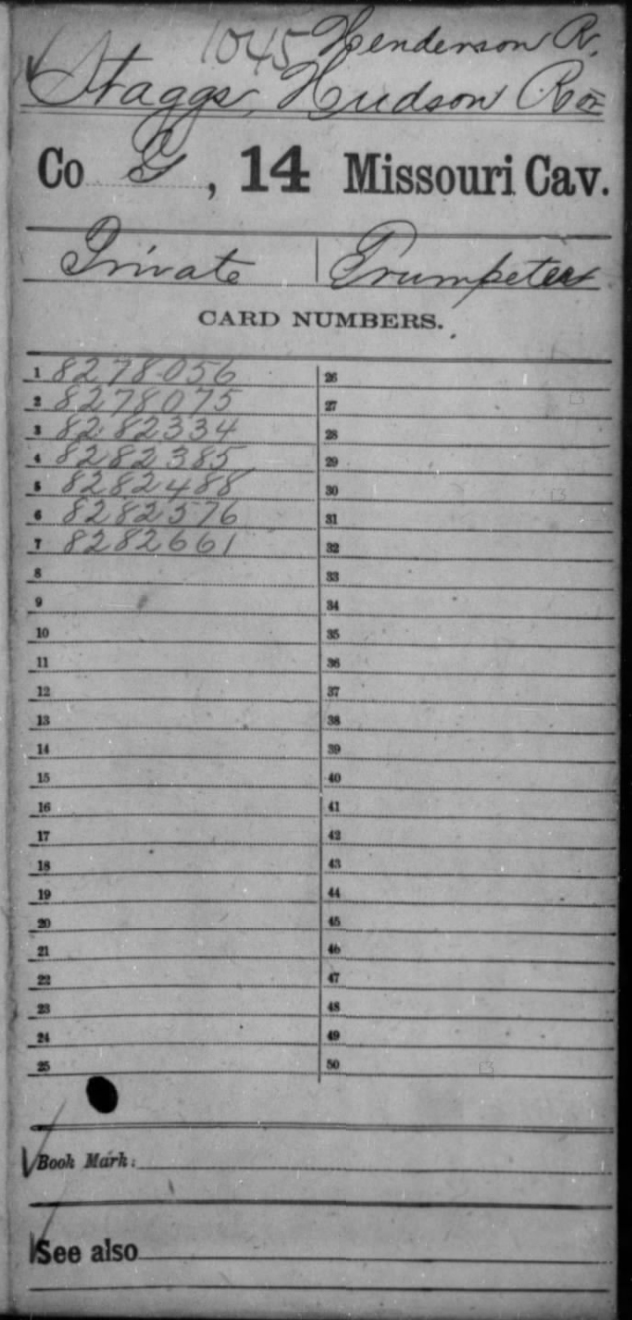 1045 Henderson R.
Staggs, Hudson R or
Co G, 14 Missouri Cav.
Private | Trumpeter
CARD NUMBERS.
1 8278056 26
2 8278075 27
3 8282334 28
4 8282385 29
5 8282488 30
6 8282576 31
7 8282661 32
8 33
9 34
10 35
11 36
12 37
13 38
14 39
15 40
16 41
17 42
18 43
19 44
20 45
21 46
22 47
23 48
24 49
25 50
Book Mark:
See also